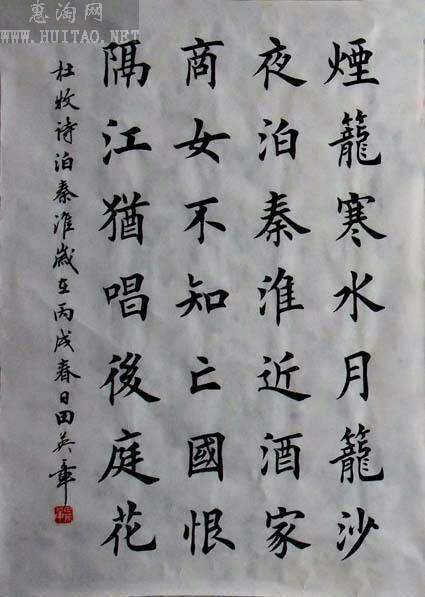 惠淘网
WWW.HUITAO.NET
煙籠寒水月籠沙
夜泊秦淮近酒家
商女不知亡國恨
隔江猶唱後庭花
杜牧诗泊秦淮歲在丙戌春日田英章